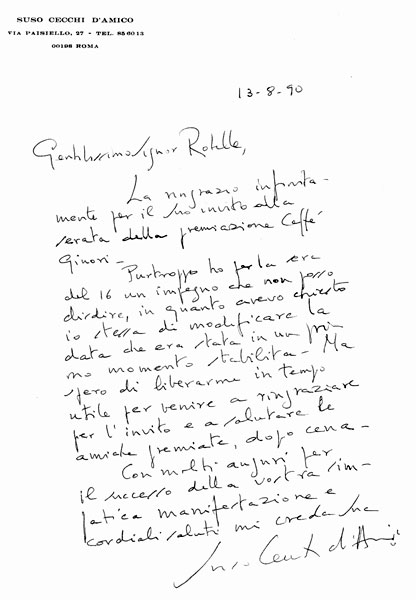 SUSO CECCHI D'AMICO
VIA PAISIELLO, 27 - TEL. 856013
00198 ROMA
13-8-90
Gentilissimo Signor Rotella,
La ringrazio infinita-
mente per il suo invito alla
serata della premiazione Caffè
Ginori -
Purtroppo ho per la sera
del 16 un impegno che non posso
disdire, in quanto avevo chiesto
io stessa di modificare la
data che era stata in un pri-
mo momento stabilita - Ma
spero di liberarmi in tempo
utile per venire a ringraziare
per l'invito e a salutare le
amiche premiate, dopo cena -
Con molti auguri per
il successo della vostra sim-
patica manifestazione e
cordiali saluti mi creda sua
Suso Cecchi d'Amico